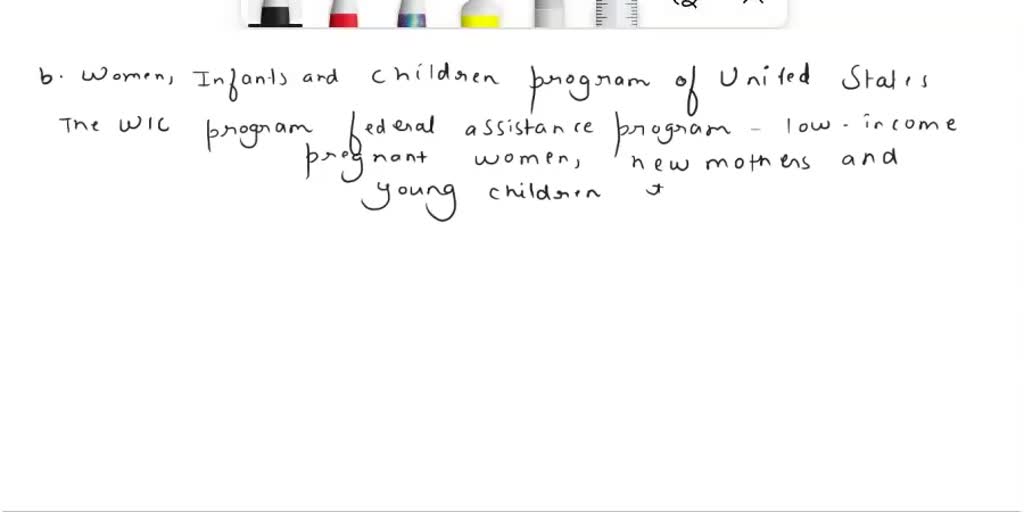 b. Women, Infants and children program of United States
The WIC program federal assistance program - low-income
pregnant women, new mothers and
young children